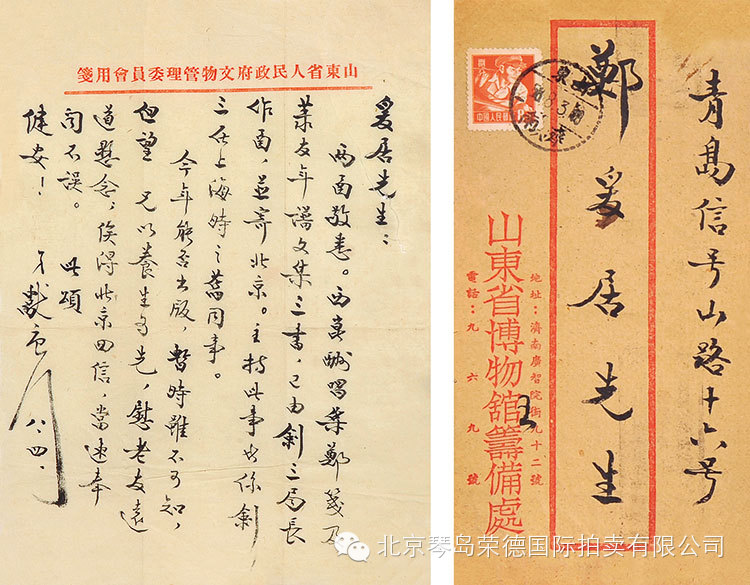 山東省人民政府文物管理委員會用箋
爰居先生：
两函敬悉。西崑酬唱集鄭箋及
菉友年譜文集三書，已由劍三局長
作函，並寄北京。主持此事者係劍
三在上海時之舊同事。
今年能否出版，暫時雖不可知，
但望 兄以養生為先，慰老友遠
道懸念，俟得北京回信，當速奉
聞不誤。 此頌
健安！
弟戴 八.四.
青島信号山路十六号
鄭爰居先生
地址：濟南廣智院街九十二號
電話：九六九號
山東省博物館籌備處
王
北京琴岛荣德国际拍卖有限公司